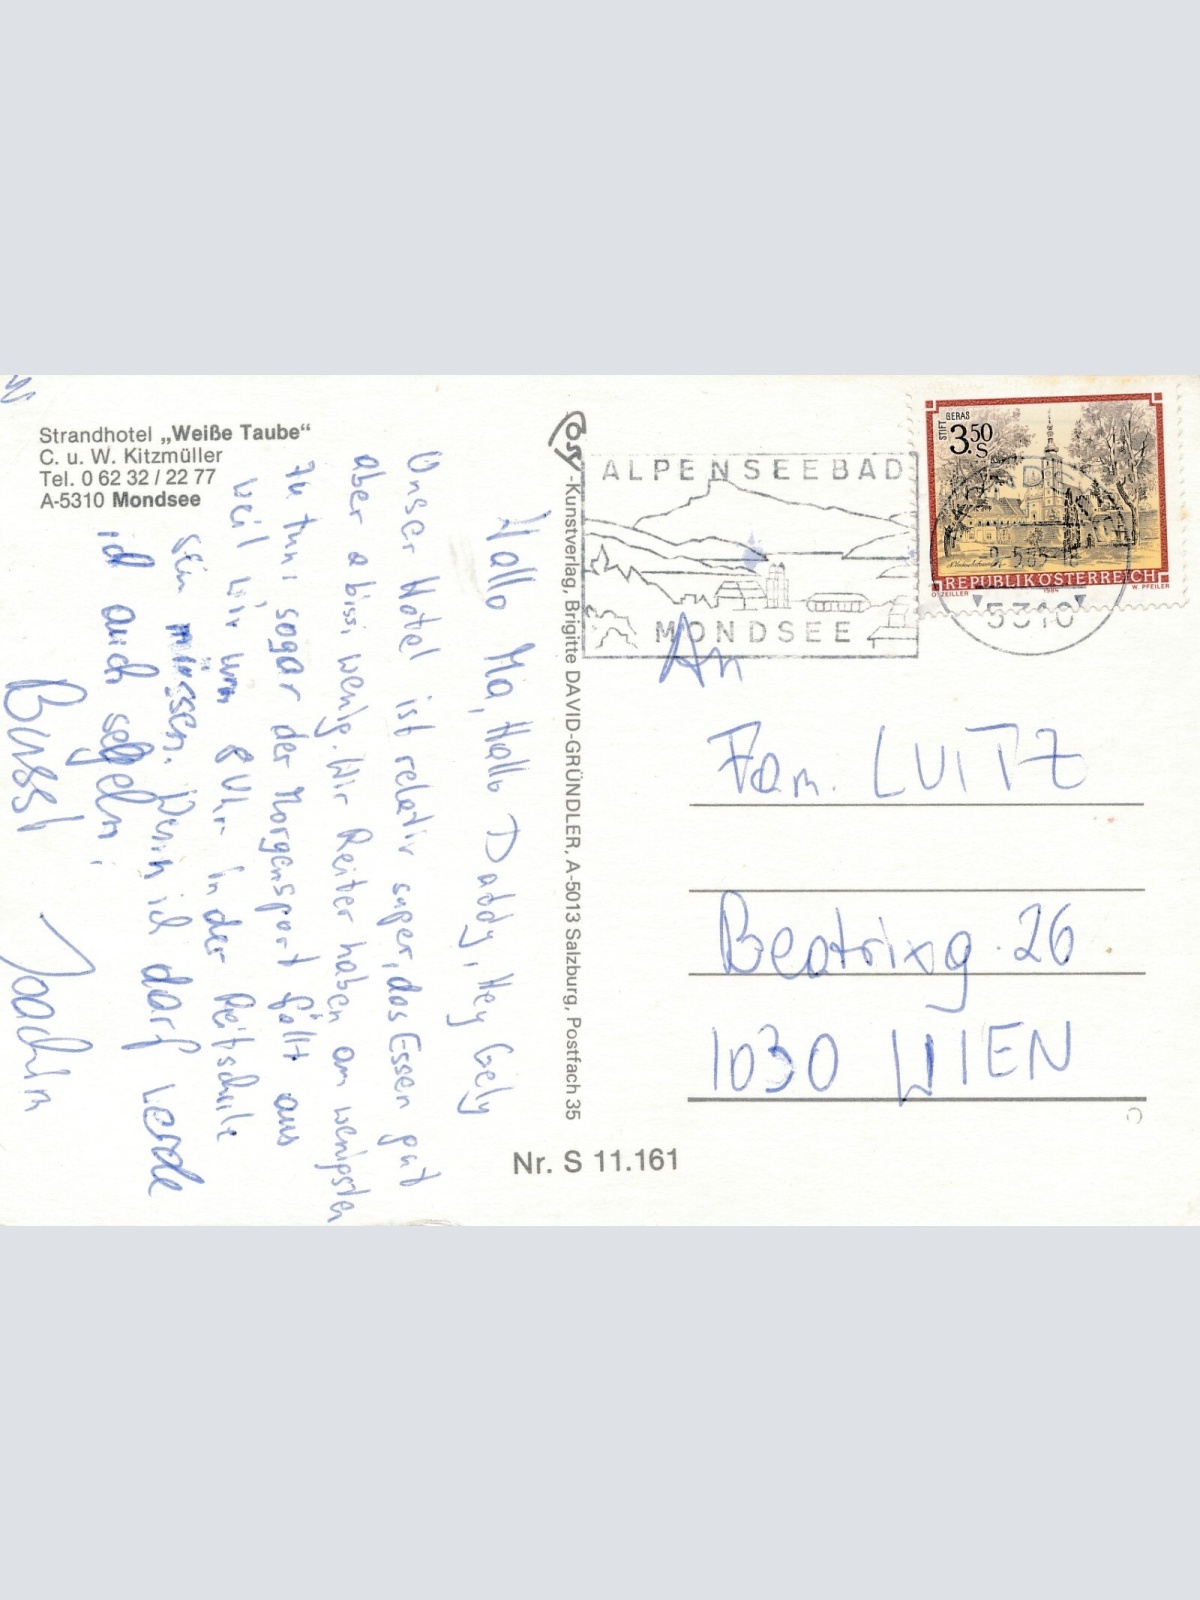 Strandhotel „Weiße Taube“
C. u. W. Kitzmüller
Tel. 0 62 32 / 22 77
A-5310 Mondsee
Hallo Ma, Hallo Daddy, Hey Gely
Unser Hotel ist relativ super, das Essen gut
aber a bissi wenig. Wir Reiter haben am wenigsten
zu tun, sogar der Morgensport fällt aus
weil wir um 8 Uhr in der Reitschule
sein müssen. Denn ich darf werde
ich auch segeln.
Bussi
Joachim
Post-Kunstverlag, Brigitte DAVID-GRÜNDLER, A-5013 Salzburg, Postfach 35
Nr. S 11.161
ALPENSEEBAD
MONDSEE
STIFT GERAS
3.50
S
REPUBLIK ÖSTERREICH
O. ZEILLER 1984 W. PFEILER
5310
An
Fam. LUITZ
Beatrixg. 26
1030 WIEN